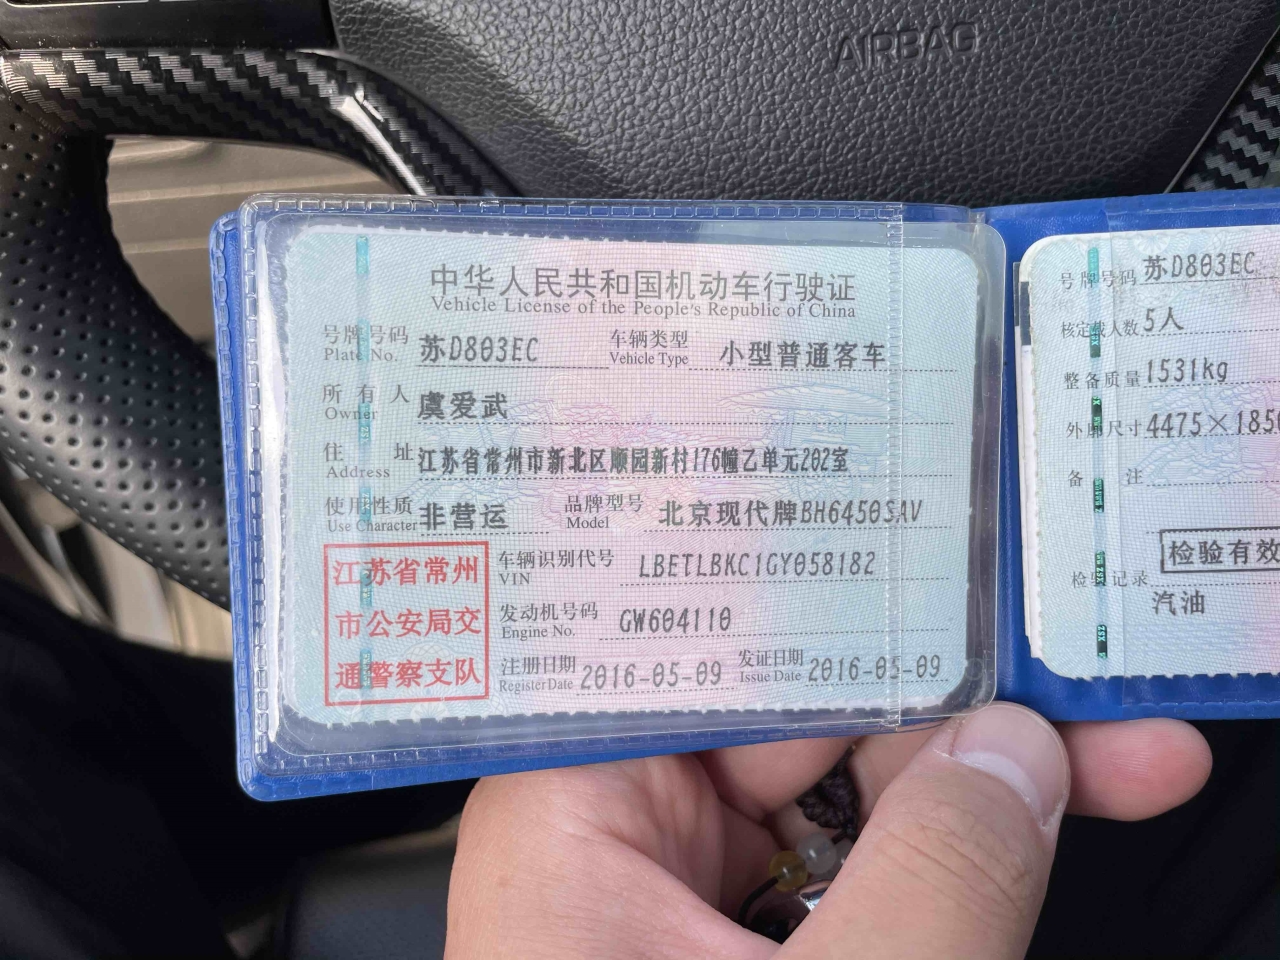 AIRBAG
中华人民共和国机动车行驶证
Vehicle License of the People's Republic of China
号牌号码 苏D803EC 车辆类型 小型普通客车
Plate No. Vehicle Type
所有人 虞爱武
Owner
住址 江苏省常州市新北区顺园新村176幢乙单元202室
Address
使用性质 非营运 品牌型号 北京现代牌BH6450SAV
Use Character Model
江苏省常州
市公安局交
通警察支队
车辆识别代号 LBETLBKC1GY058182
VIN
发动机号码 GW604110
Engine No.
注册日期 2016-05-09 发证日期 2016-05-09
Register Date Issue Date
号牌号码 苏D803EC
核定载人数 5人
整备质量 1531kg
外廓尺寸 4475×1850
备注
检验有效
检验记录
汽油